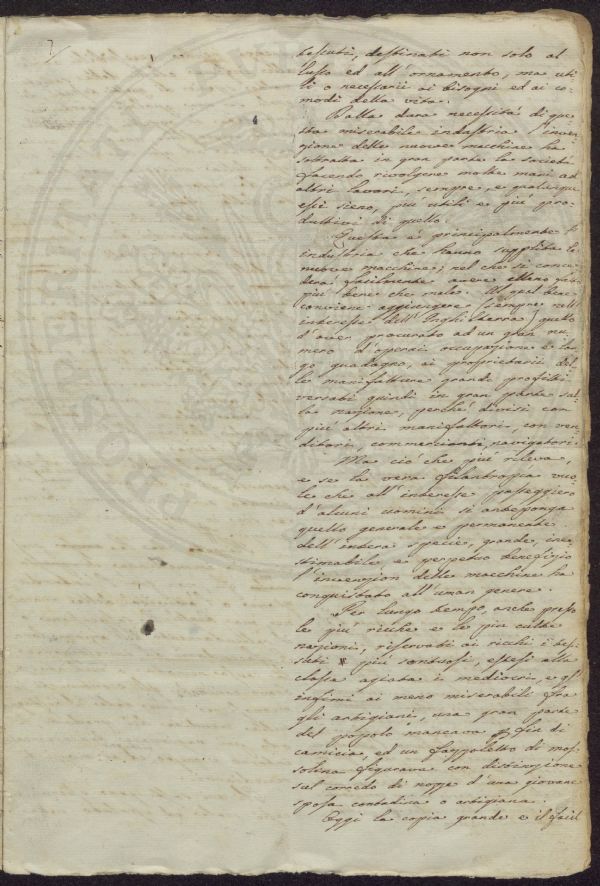 tessuti, destinati non solo al
lusso ed all'ornamento, ma uti
li o necessarii ai bisogni ed ai co-
modi della vita.
Dalla dura necessità di que
sta miserabile industria l'inven
zione delle nuove macchine ha
sottratta in gran parte la società
facendo rivolgere molte mani ad
altri lavori, sempre, e qualunque
essi sieno, più utili e più pro-
duttivi di quello.
Questa è principalmente l'
industria che hanno supplita le
nuove macchine; nel che si conce
derà facilmente avere
più bene che male. Al qual bene
conviene aggiungere sempre nell'
interesse dell'Inghilterra quello
d'aver procurato ad un gran nu
mero d'operai occupazione e lar
go guadagno, ai proprietarii del
le manifatture grandi profitti
versati quindi in gran parte sul
la nazione, perchè divisi con
più altri manifattori, con ven
ditori, commercianti, navigatori.
Ma ciò che più rileva,
e se la vera filantropia vuo
le che all'interesse passeggiero
d'alcuni uomini si anteponga
quello generale e permanente
dell'intera specie, grande, ine
stimabile e perpetuo beneficio
l'invenzion delle macchine ha
conquistato all'uman genere.
Per lungo tempo, anche presso
le più ricche e le più culte
nazioni, riservati ai ricchi i tes-
suti più sontuosi, estesi alla
classe agiata i mediocri, e gl'
infimi ai meno miserabili fra
gli artigiani, una gran parte
del popolo mancava fin di
camicia, ed un fazzoletto di mos
solina figurava con distinzione
sul corredo di nozze d'una giovane
sposa contadina o artigiana.
Oggi la copia grande e il facil